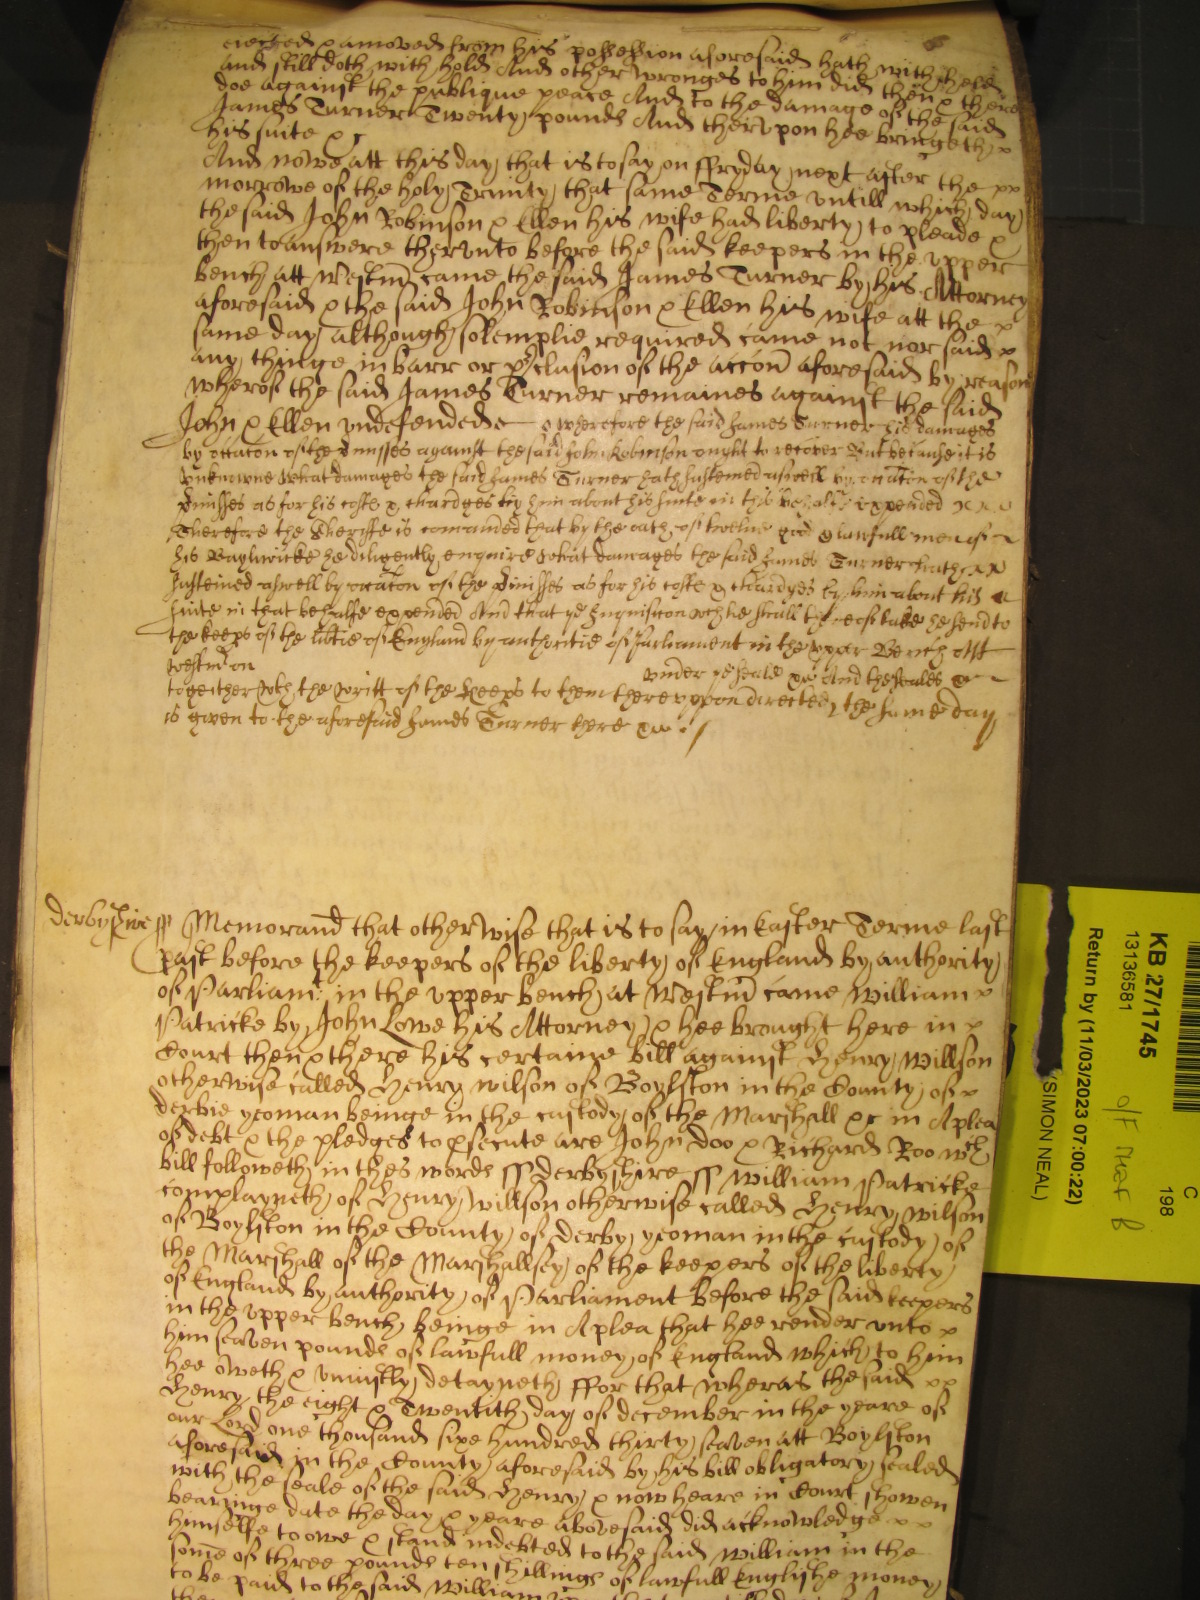 eiected & amoved from his possession aforesaid hath with held
and still doth with hold And other wronges to him did then & there
doe against the publique peace And to the damage of the said
James Turner Twenty pounds And therupon hee bringeth x
his suite &c
And nowe att this day that is to say on ffryday next after the xx
morrowe of the holy Trinity that same Terme untill which day
the said John Robinson & Ellen his wife had liberty to pleade &
then to answere therunto before the said keepers in the upper
bench att Westm̃ came the said James Turner by his Attorney
aforesaid & the said John Robinson & Ellen his wife att the x
same day although solemplie required came not nor said x
any thinge in barr or p̃clusion of the accõn aforesaid by reason
wherof the said James Turner remaines against the said
John & Ellen undefended wherefore the said James Turner his damages
by occac̃on of the p̃misses against the said John Robinson ought to recover But because it is
unknowne what damages the said James Turner hath susteined aswell by occac̃on of the
p̃misses as for his costs & chardges by him about his suite in this behalfe expended xxx
Therefore the Sheriffe is com̃anded that by the oath of twelve good & lawfull men of
his Bayliwicke he diligently enquire what damages the said James Turner hath xx
susteined aswell by occac̃on of the p̃misses as for his costs & chardges by him about his
suite in that behalfe expended And that ye Inquisic̃on wch he shall thereof take he send to
the keeps of the lib̃tie of England by authoritie of Parliament in the upper Bench att
Westm̃ on under ye seale &c And the seales &c
together wth the writt of the keeps to them thereuppon directed, the same day
is given to the aforesaid James Turner there &c
derbyshire ss Memorand̃ that other wise that is to say in Easter Terme last
past before the keepers of the liberty of England by authority
of Parliamt in the upper bench at Westm̃ came William x
Patricke by John Lowe his Attorney & hee brought here in x
Court then & there his certaine bill against Henry Willson
otherwise called Henry wilson of Boylston in the County of x
derbie yeoman beinge in the custody of the Marshall &c in A plea
of debt & the pledges to p̱secute are John Doo & Richard Roo wch
bill followeth in thes words ss derbyshire ss William Patricke
complayneth of Henry Willson otherwise called Henry wilson
of Boylston in the County of derby yeoman in the custody of
the Marshall of the Marshallsey of the keepers of the liberty
of England by authority of Parliament before the said keepers
in the upper bench beinge in A plea that hee render unto x
him seaven pounds of lawfull money of England which to him
hee oweth & uniustly detayneth ffor that wheras the said xx
Henry the eight & Twentith day of december in the yeare of
our Lord one thousand sixe hundred thirty seaven att Boylston
aforesaid in the County aforesaid by his bill obligatory sealed
with the seale of the said Henry & now heare in Court showen
bearinge date the day & yeare abovesaid did acknowledge xx
himselfe to owe & stand indebted to the said William in the
som̃e of three pounds ten shillings of lawfull Englishe money
to be paid to the said William
KB 27/1745
13136581
Return by (11/03/2023 07:00:22)
(SIMON NEAL)
C
198